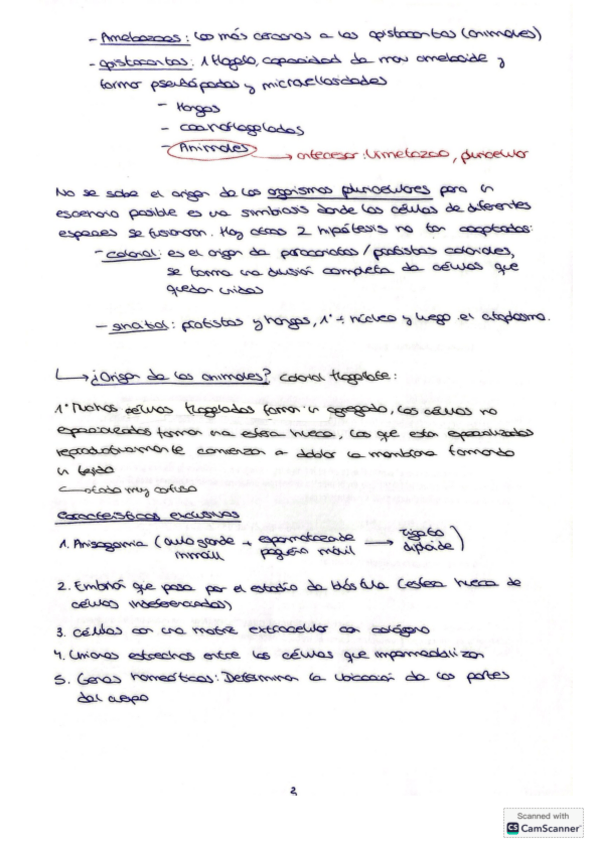 - Amebozoos: los más cercanos a los opistocontos (animales)
- opistocontos: 1 flagelo, capacidad de mov ameboide y
formar pseudópodos y microvellosidades
- Hongos
- coanoflagelados
- Animales → antecesor: Urmetazoo, pluricelular
No se sabe el origen de los organismos pluricelulares pero un
escenario posible es una simbiosis donde las células de diferentes
especies se fusionaron. Hay otras 2 hipótesis no tan adaptadas:
- colonial: es el origen de protistas coloniales,
se forma una división completa de células que
quedan unidas
- sincitial: protistas y hongos, 1º ÷ núcleo y luego el citoplasma.
↳ ¿Origen de los animales? colonial flagelate:
1º Muchas células flageladas forman un agregado, las células no
especializadas forman una esfera hueca, las que están especializadas
reproductivamente comienzan a doblar la membrana formando
un tejido
muy confuso
Características exclusivas
1. Anisogamia (óvulo grande inmóvil + espermatozoide pequeño móvil → zigoto diploide)
2. Embrión que pasa por el estadio de blástula (esfera hueca de
células indiferenciadas)
3. Células con una matriz extracelular con colágeno
4. Uniones estrechas entre las células que impermeabilizan
5. Genes homeóticos: Determinan la ubicación de las partes
del cuerpo
2
Scanned with
CS CamScanner